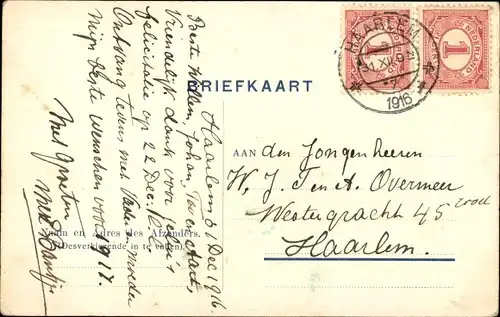 BRIEFKAART
Haarlem 31 Dec 1916.
Beste Willem, Johan,
Vriendelijk dank voor jullie's
felicitatie op 22 Dec.
Ontvang tevens met Vader en moeder
mijn beste wenschen voor
1917.
Met groeten
Naam en Adres des Afzenders.
(Desverkiezende in te vullen).
AAN den Jongenheeren
W, J, T en A. Overmeer
Westergracht 45 rood
Haarlem.
HAARLEM
31.XII
1916
NEDERLAND
1
1